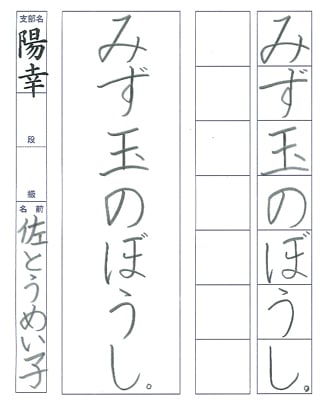 みず玉のぼうし。
みず玉のぼうし。
支部名
陽幸
段
級
名前
佐とうめい子